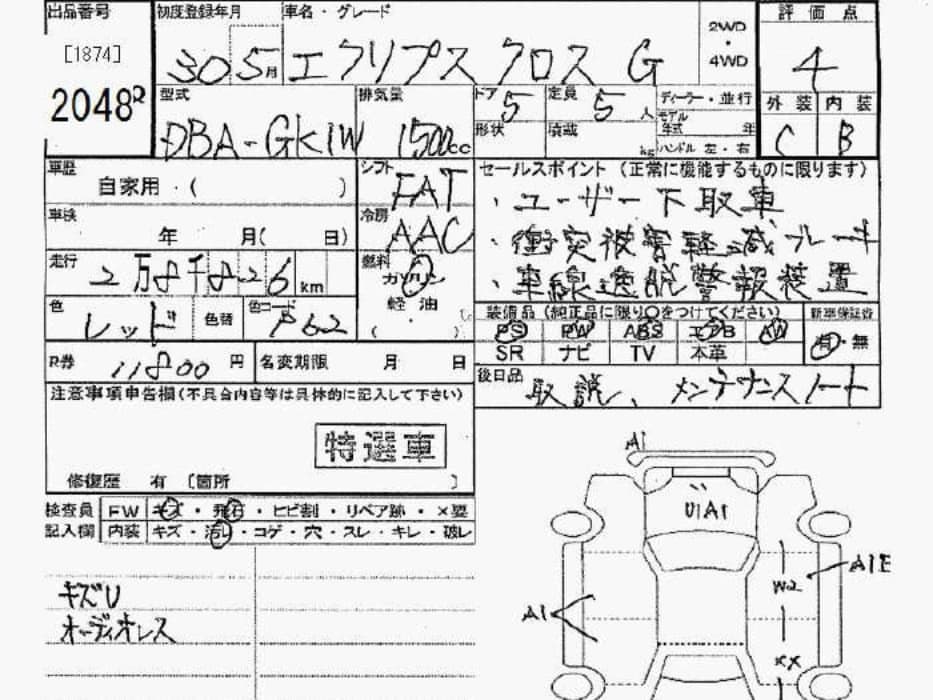 出品番号
[1874]
2048
初度登録年月
30 5月
車名・グレード
エクリプス クロス G
2WD
・
4WD
評価点
4
外装 内装
C B
型式
DBA-GK1W
排気量
1500cc
ドア 5
定員 5人
ディーラー・並行
モデル年式 年
形状
積載 kg
ハンドル 左・右
車歴
自家用・( )
シフト
FAT
セールスポイント (正常に機能するものに限ります)
・ユーザー下取車
・衝突被害軽減ブレーキ
・車線逸脱警報装置
車検
年 月( 日)
冷房
AAC
走行
2万8千826km
燃料
ガソリン
軽油
( ・ )
色
レッド
色替
色コード
P62
装備品 (純正品に限り○をつけてください)
新車保証書
PS PW ABS エアB AW
有・無
SR ナビ TV 本革
R券 11800 円
名変期限 月 日
後日品
取説、メンテナンスノート
注意事項申告欄(不具合内容等は具体的に記入して下さい)
特選車
修復歴 有 〔箇所 〕
検査員 FW キズ・飛石・ヒビ割・リペア跡・×要
記入欄 内装 キズ・汚レ・コゲ・穴・スレ・キレ・破レ
キズU
オーディオレス
A1
U1A1
A1
W2
A1E
XX